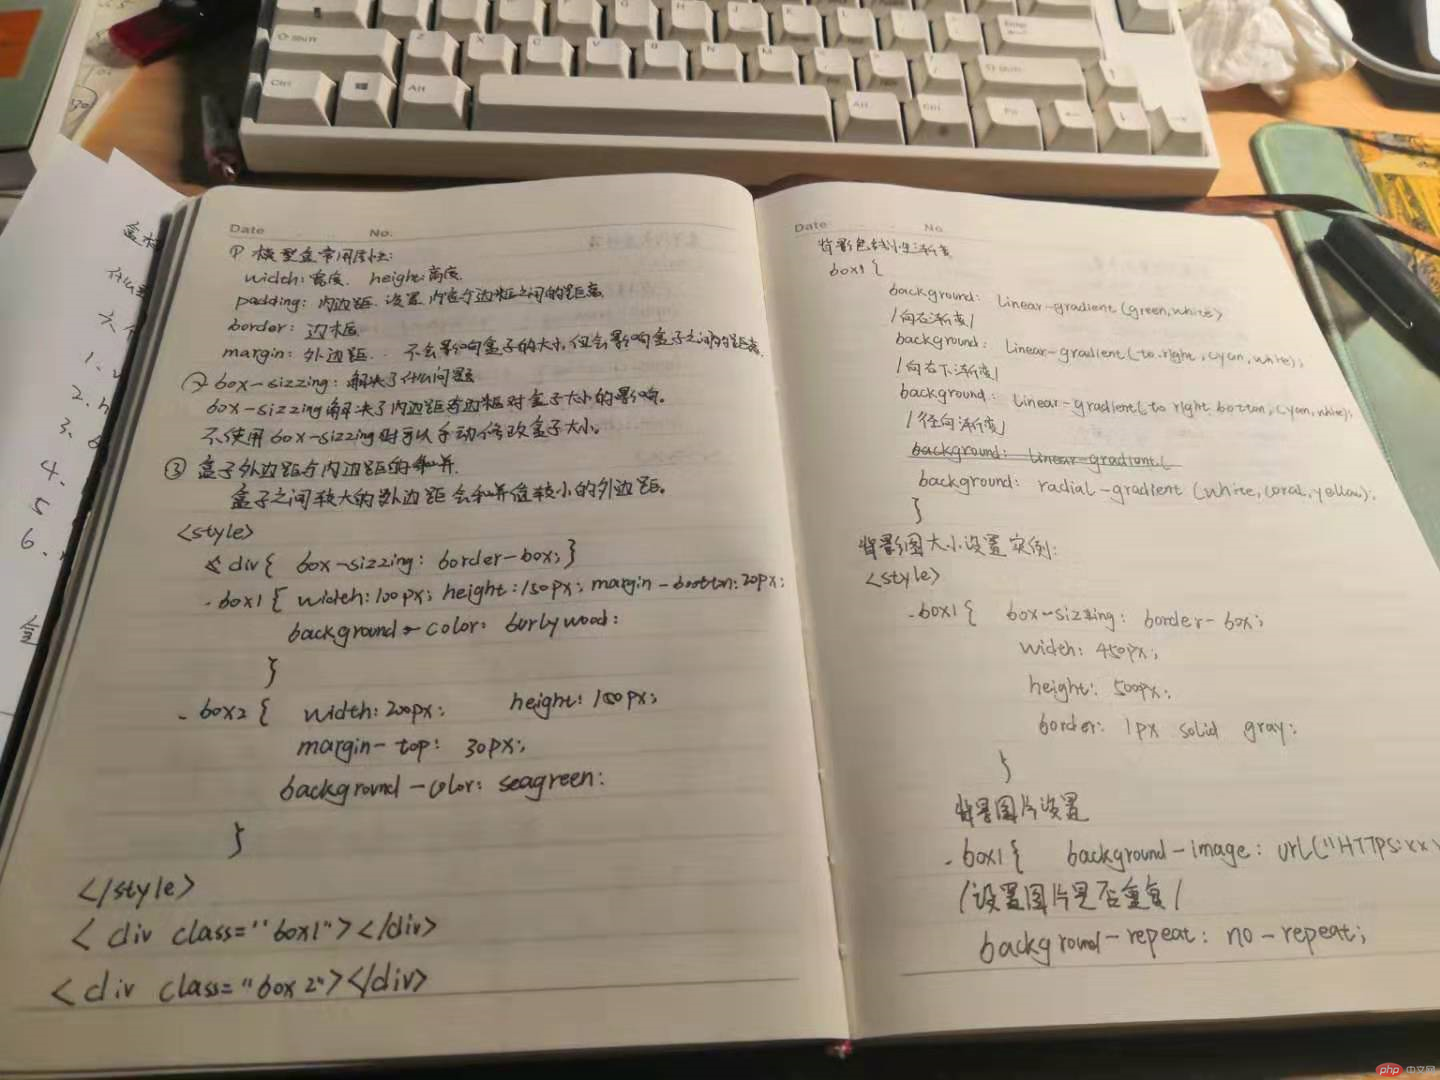 Date
No.
① 模型盒常用属性:
width:宽度. height:高度.
padding: 内边距. 设置 内容与边框之间的距离
border: 边框
margin: 外边距. . 不会影响盒子的大小,但会影响盒子之间的距离.
② box-sizzing: 解决了什么问题
box-sizzing解决了内边距与边框对盒子大小的影响.
不使用box-sizzing时可以手动修改盒子大小.
③ 盒子外边距与内边距的合并.
盒子之间较大的外边距会合并值较小的外边距.
<style>
div{ box-sizzing: border-box;}
.box1{ width:100px; height:150px; margin-bootton:20px;
background-color: burlywood;
}
.box2{ width:200px; height:150px;
margin-top: 30px;
background-color: seagreen;
}
</style>
< div class="box1"></div>
< div class="box2"></div>
Date
No
背影色线性渐变
box1{
background: linear-gradient(green,white)
/向右渐变/
background: linear-gradient(to right, cyan, white);
/向右下渐变/
background: linear-gradient(to right botton, cyan, white);
/径向渐变/
background: linear-gradient(
background: radial-gradient(white, coral, yellow);
}
背影图大小设置实例:
<style>
.box1{ box-sizzing: border-box;
width: 450px;
height: 500px;
border: 1px solid gray;
}
背景图片设置
.box1{ background-image: url("HTTPS:xx
/设置图片是否重复/
background-repeat: no-repeat;
什么
六个
1.
2.
3.
4.
5
6.
盒
Shift
Z
X
C
V
B
N
M
Ctrl
Alt
Alt
Ctrl
Fn
php 中文网